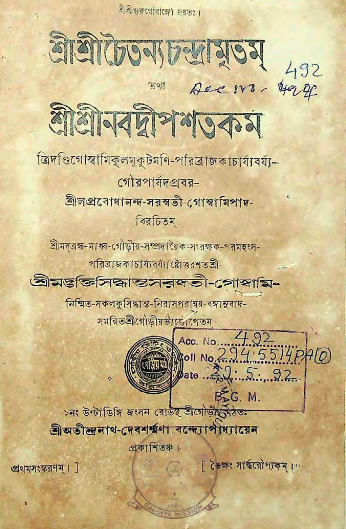 শ্রীশ্রীগুরুগৌরাঙ্গৌ জয়তঃ।
শ্রীশ্রীচৈতন্যচন্দ্রামৃতম্
তথা
492
Acc No.
শ্রীশ্রীনবদ্বীপশতকম
ত্রিদণ্ডিগোস্বামিকুলমুকুটমণি-পরিব্রাজকাচার্য্যবর্য্য-
গৌরপার্ষদপ্রবর-
শ্রীলপ্রবোধানন্দ-সরস্বতী-গোস্বামিপাদ-
বিরচিতম্
শ্রীমদ্ব্রহ্ম-মাধ্ব-গৌড়ীয়-সম্প্রদায়ৈক-সংরক্ষক-পরমহংস-
পরিব্রাজকাচার্য্যবর্য্যাষ্টোত্তরশতশ্রী-
শ্রীমদ্ভক্তিসিদ্ধান্তসরস্বতী-গোস্বামি-
নির্ম্মিত-সকলকুসিদ্ধান্ত-নিরাসপরান্বয়-বঙ্গানুবাদ-
সমন্বিতশ্রীগৌড়ীয়ভাষ্যোপেতম্
Acc. No. 492
Coll No. 294.5514 PA(O)
Date 29.5.92
B.G.M.
১নং উল্টাডিঙ্গি জংসন রোডস্থ শ্রীগৌড়ীয়মঠতঃ
শ্রীঅতীন্দ্রনাথ-দেবশর্ম্মণা বন্দ্যোপাধ্যায়েন
প্রকাশিতঞ্চ।
প্রথমসংস্করণম্। ]
[ ভৈক্ষং সার্দ্ধরৌপ্যকম্।
GAUDIYA MISSION